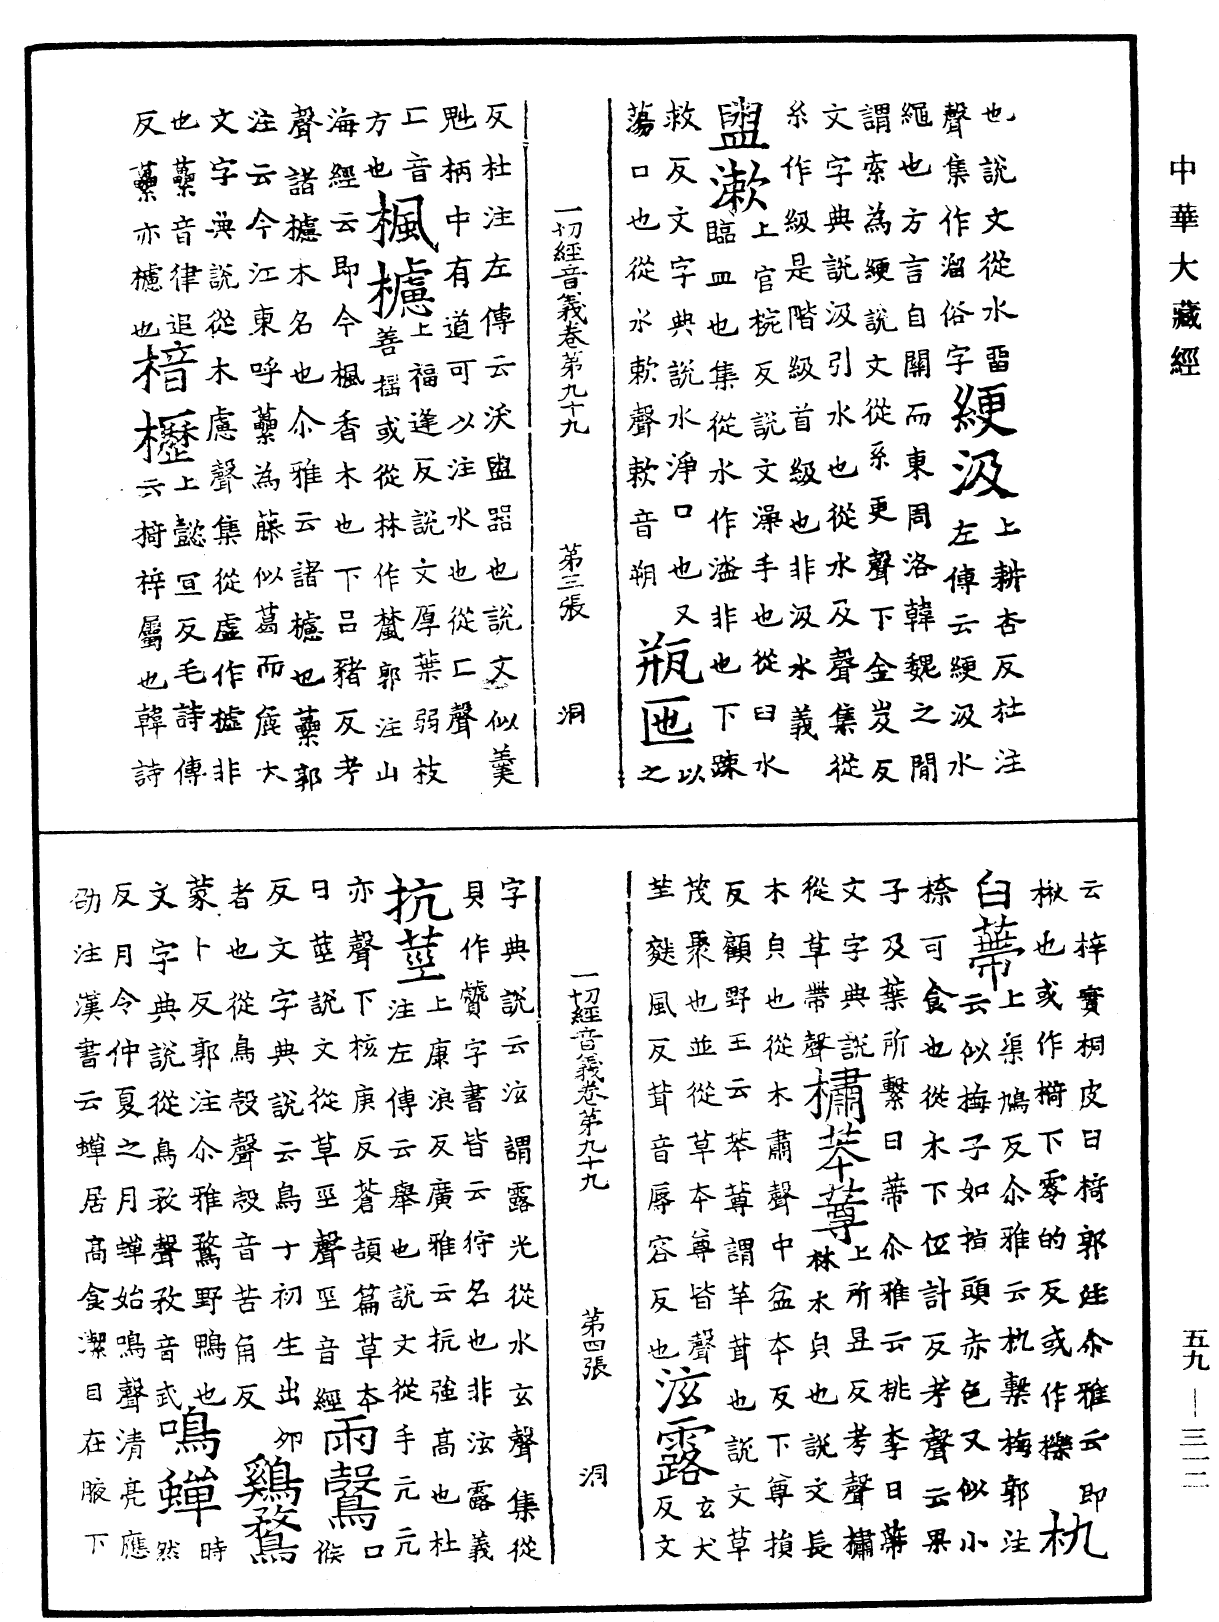 中華大藏經
也說文從水畱
聲集作溜俗字綆汲上耕杏反杜注
左傳云綆汲水
繩也方言自關而東周洛韓魏之閒
謂索為綆說文從糸更聲下金岌反
文字典說汲引水也從水及聲集從
糸作級是階級首級也非汲水義
盥漱上官椀反說文澡手也從臼水
臨皿也集從水作溢非也下踈
救反文字典說水淨口也又
蕩口也從水欶聲欶音朔
瓶匜以
之
一切經音義卷第九十九 第三張 洞
反杜注左傳云沃盥器也說文似羹
魁柄中有道可以注水也從匚聲
匚音
方也楓櫖上福逢反說文厚葉弱枝
善搖或從林作檒郭注山
海經云即今楓香木也下呂豬反考
聲諸櫖木名也尒雅云諸櫖也藟郭
注云今江東呼藟為藤似葛而麁大
文字典說從木慮聲集從虛作樝非
也藟音律追
反藟亦櫖也
椅櫪上懿宜反毛詩傳
云椅梓屬也韓詩
云梓實桐皮曰椅郭注尒雅云即
楸也或作椅下零的反或作櫟
朹
臼蔕上渠鳩反尒雅云朹繫梅郭注
云似梅子如指頭赤色又似小
㮈可食也從木下位計反考聲云果
子及葉所繫曰蔕尒雅云桃李曰蔕
文字典說
從草帶聲橚苯䔿上所昱反考聲橚
林木貞也說文長
木皃也從木肅聲中盆本反下尊損
反顧野王云苯䔿謂草茸也說文草
茂聚也並從草本尊皆聲
茸麰風反茸音辱容反也
泫露玄犬
反文
一切經音義卷第九十九 第四張 洞
字典說云泫謂露光從水玄聲集從
貝作贙字書皆云狩名也非泫露義
抗莖上康浪反廣雅云抗強高也杜
注左傳云舉也說文從手亢亢
亦聲下核庚反蒼頡篇草本
曰莖說文從草巠聲巠音經
雨鷇口
候
反文字典說云鳥子初生出卵
者也從鳥㱿聲㱿音苦角反
鷄鶩
蒙卜反郭注尒雅鶩野鴨也
文字典說從鳥敄聲敄音武
鳴蟬時
然
反月令仲夏之月蟬始鳴聲清亮應
劭注漢書云蟬居高食潔目在腋下
五九—三一二